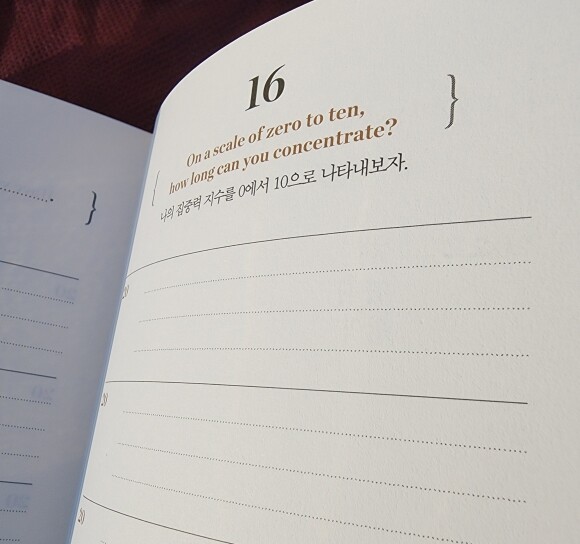 16
On a scale of zero to ten,
how long can you concentrate?
나의 집중력 지수를 0에서 10으로 나타내보자.
20
20
20